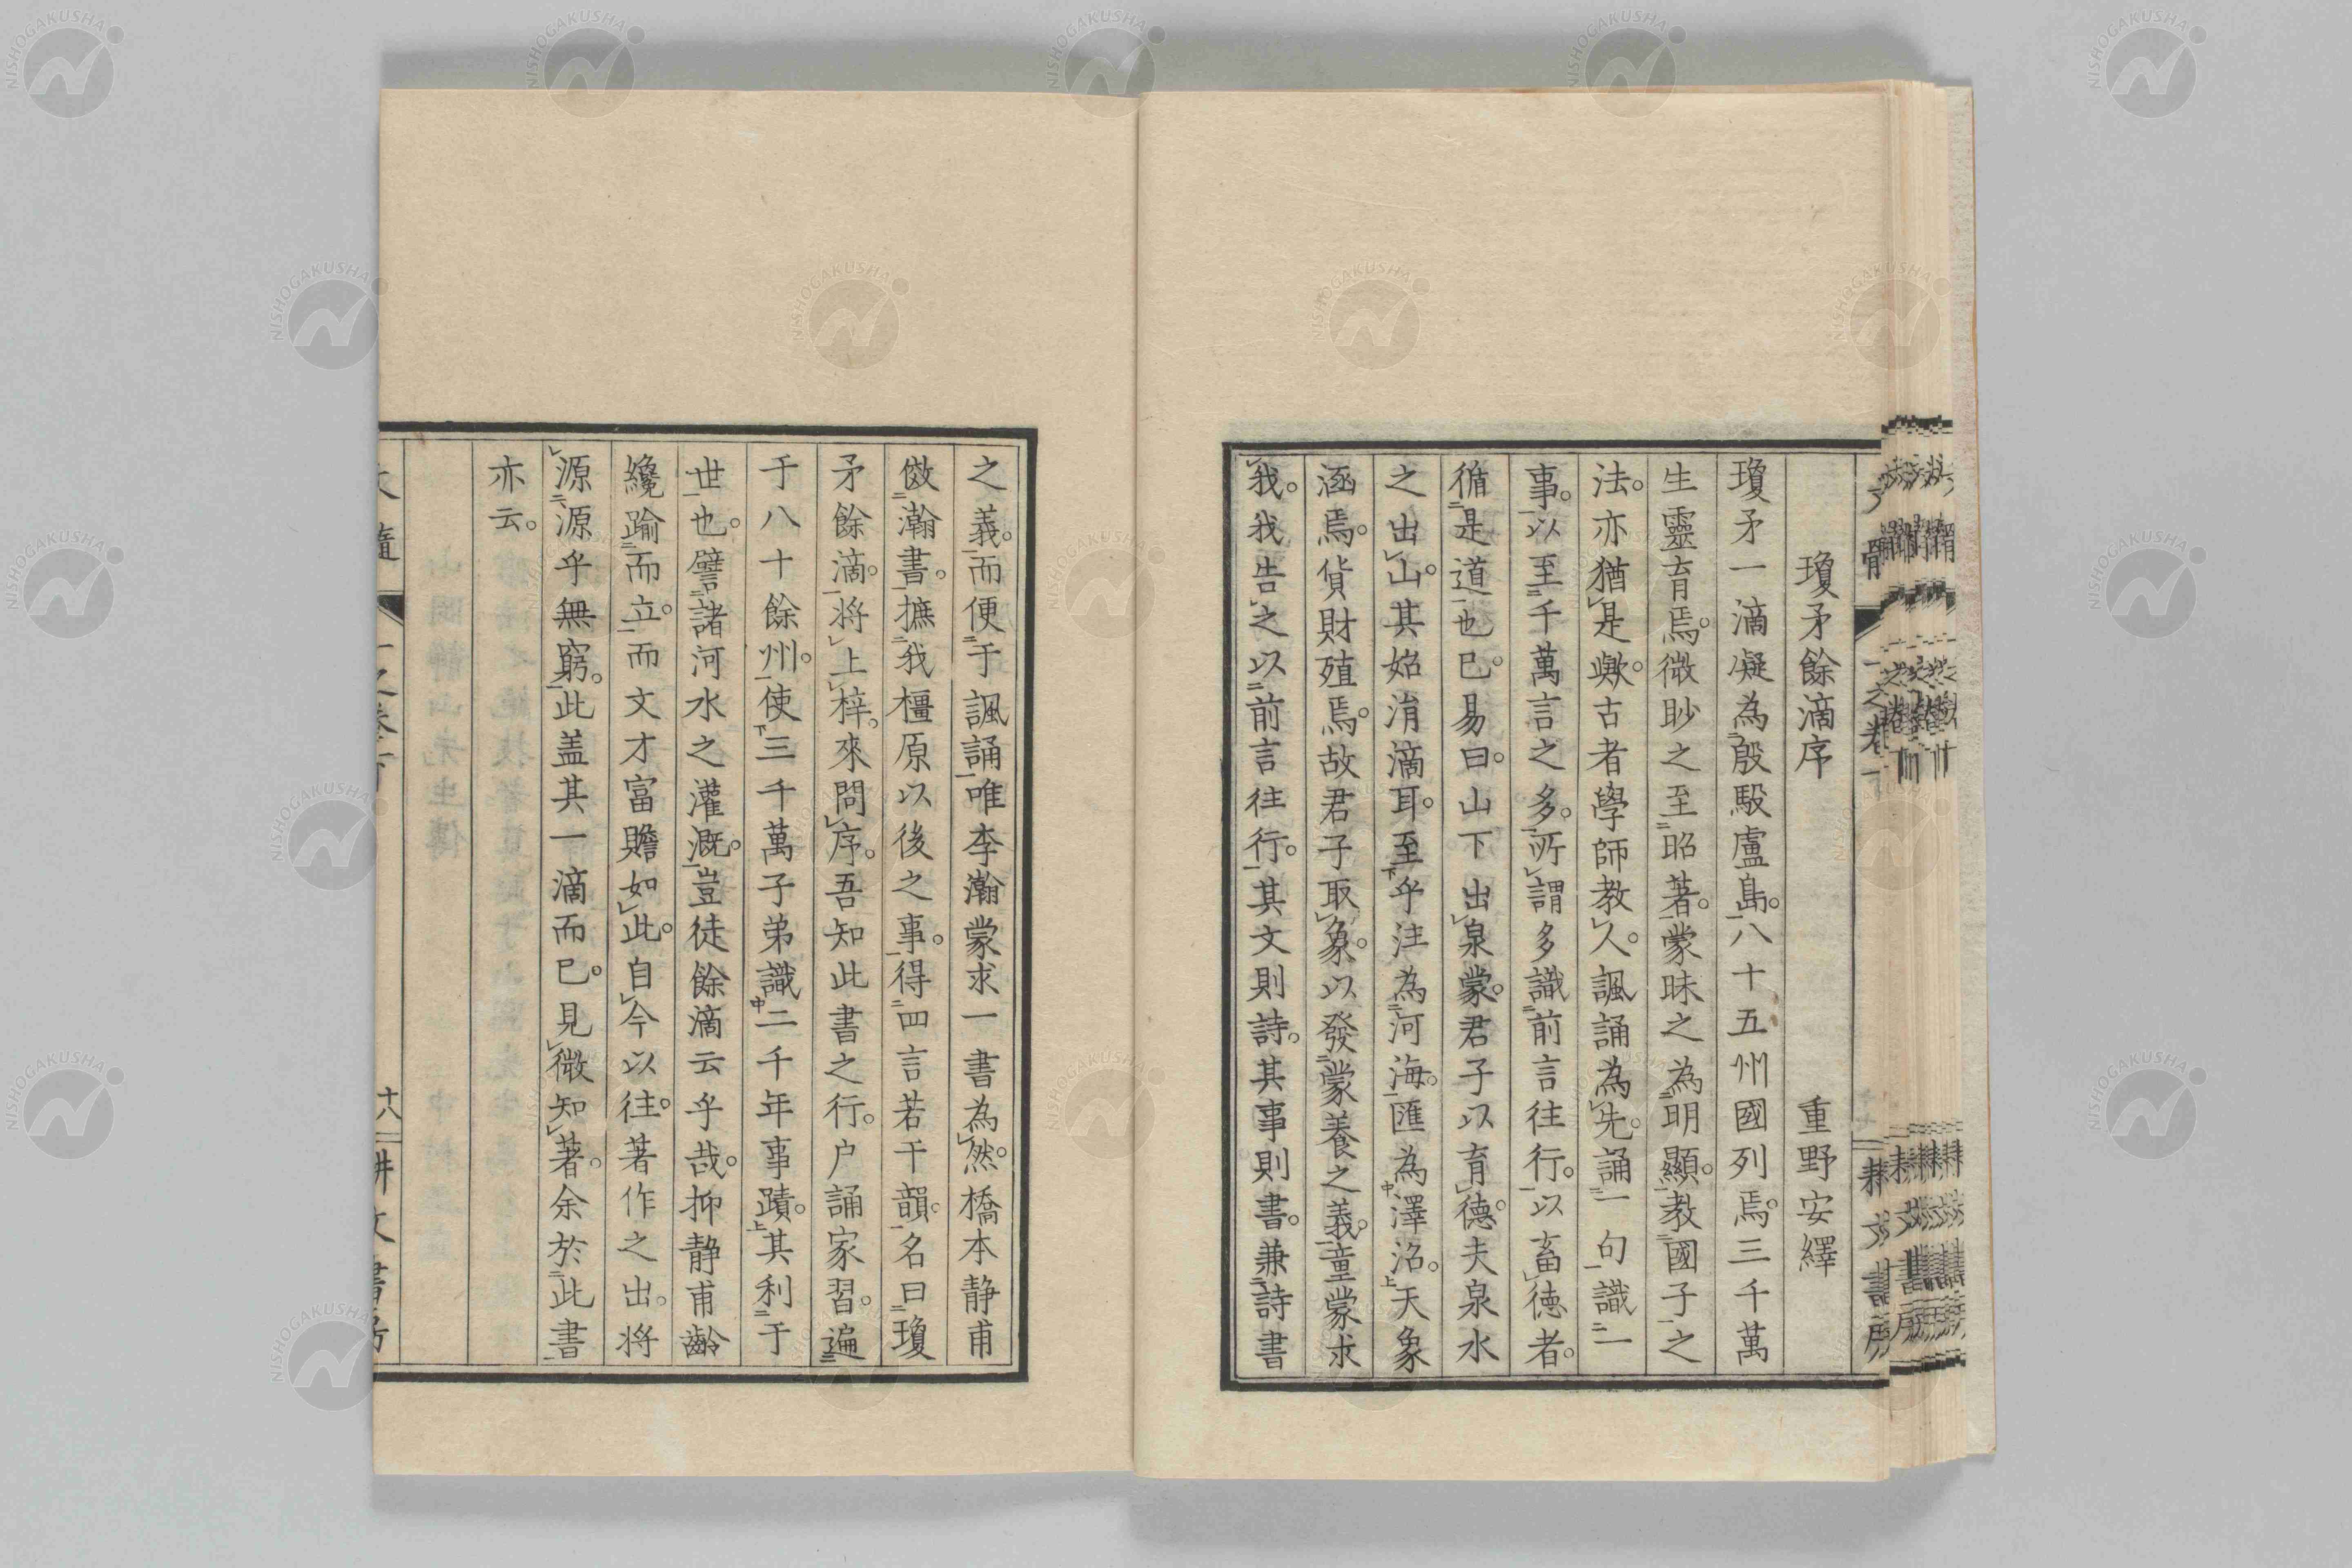 瓊矛餘滴序　重野安繹
瓊矛一滴凝為殷馭盧島。八十五州國列焉。三千萬
生靈育焉。微眇之至昭著。蒙昧之為明顯。教國子之
法。亦猶是歟。古者學師教人。諷誦為先。誦一句識一
事。以至千萬言之多。所謂多識前言往行。以畜徳者。
循是道也已。易曰。山下出泉蒙。君子以育德。夫泉水
之出山。其始涓滴耳。至乎注為河海。匯為澤沼。天象
涵焉。貨財殖焉。故君子取象。以發蒙養之義。童蒙求
我。我告之以前言往行。其文則詩。其事則書。兼詩書
之義。而便于諷誦。唯李瀚蒙求一書為然。橋本静甫
倣瀚書。摭我橿原以後之事。得四言若干韻。名曰瓊
矛餘滴。将上梓。來問序。吾知此書之行。戸誦家習。遍
于八十餘州。使三千萬子弟識二千年事蹟。其利于
世也。譬諸河水之灌溉。豈徒餘滴云乎哉。抑静甫齡
纔踰而立。而文才富贍如此。自今以往。著作之出。将
源源乎無窮。此盖其一滴而已。見微知著。余於此書
亦云。
十八